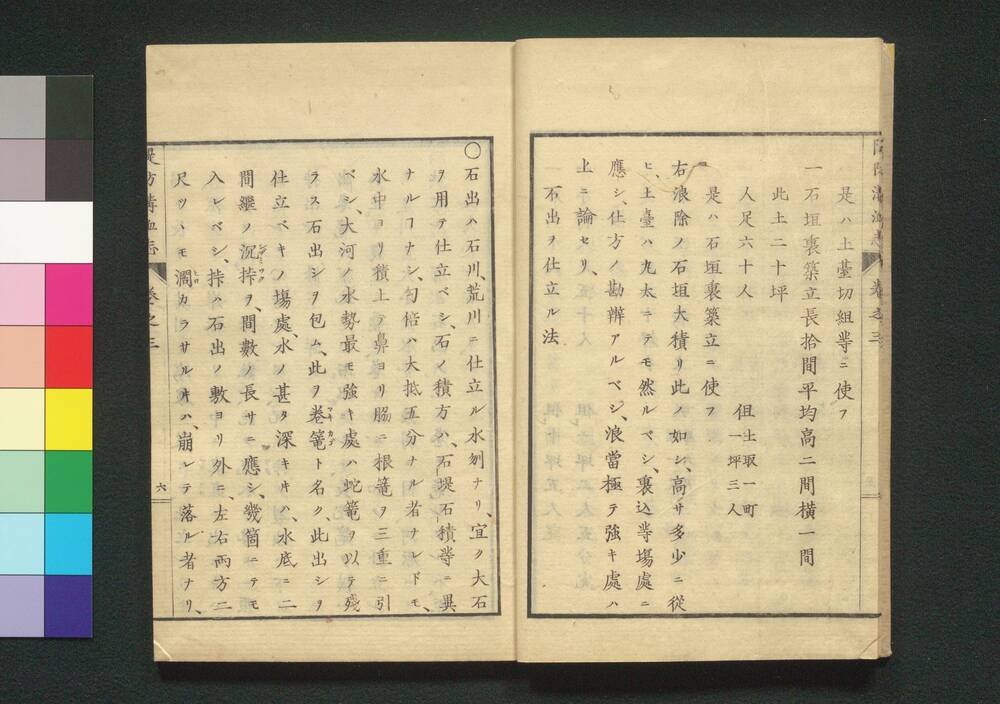 是ハ土臺切組等ニ使フ
一石垣裏築立長拾間平均高二間横一間
此土二十坪
人足六十人 但土取一町一坪三人
是ハ石垣裏築立ニ使フ
右浪除ノ石垣大積リ此ノ如シ、高サ多少ニ從
ヒ、土臺ハ九太ニテモ然ルベシ、裏込等場處ニ
應シ、仕方ノ勘辨アルベシ、浪當極テ強キ處ハ
上ニ論セリ、
石出ヲ仕立ル法
〇石出ハ石川、荒川ニ仕立ル水刎ナリ、宜ク大石
ヲ用テ仕立ベシ、石ノ積方ハ、石堤石積等ニ異
ナルコナシ、勾倍ハ大抵五分ナル者ナレドモ、
水中ヨリ積上テ鼻ヨリ脇ニ根篭ヲ三重ニ引
ベシ、大河ノ水勢最モ強キ處ハ蛇篭ヲ以テ殘
ラス石出シヲ包ム、此ヲ巻篭ト名ク、此出シヲ
仕立ベキノ場處、水ノ甚タ深キキハ、水底ニ二
間繼ノ沉㭙ヲ、間數ノ長サニ應シ、幾箇ニテモ
入レベシ、㭙ハ石出ノ敷ヨリ外ニ、左右兩方二
尺ツヽモ濶カラサルキハ、崩レテ落ル者ナリ、
卷之三
六